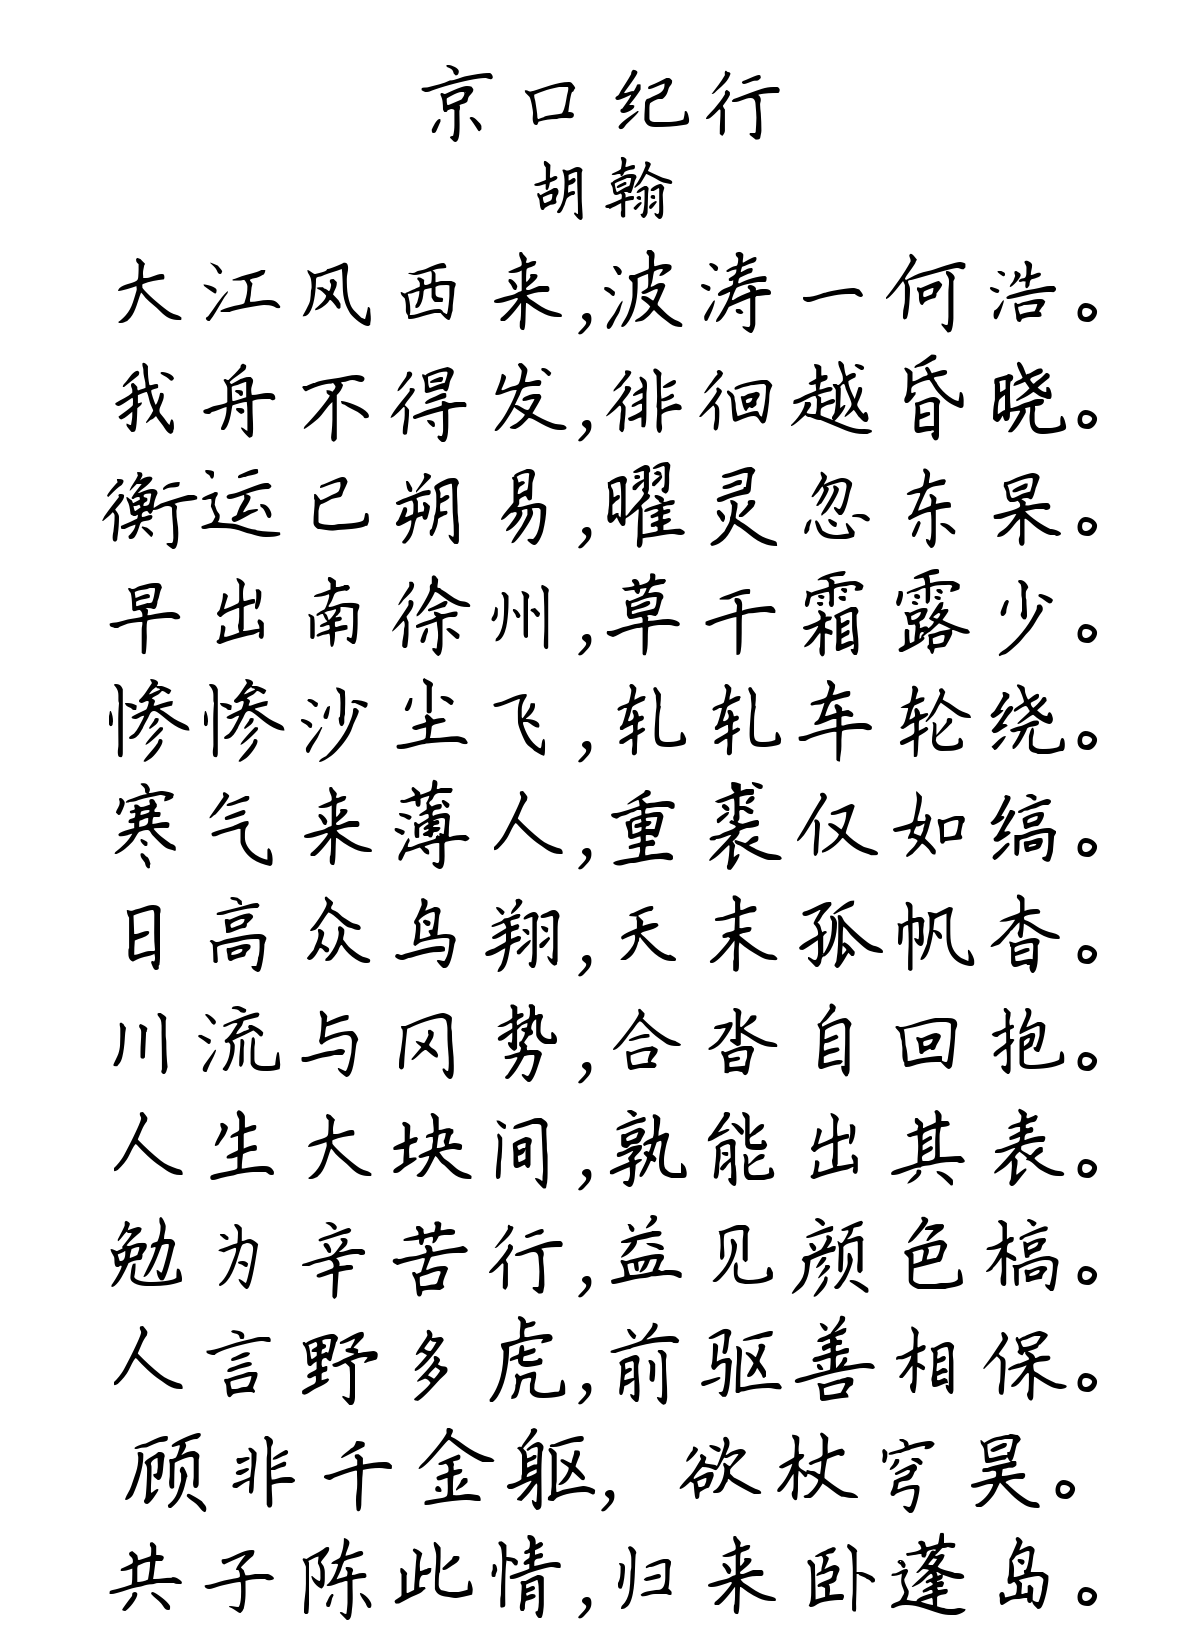 京口纪行
胡翰
大江风西来,波涛一何浩。
我舟不得发,徘徊越昏晓。
衡运已朔易,曜灵忽东杲。
早出南徐州,草干霜露少。
惨惨沙尘飞,轧轧车轮绕。
寒气来薄人,重裘仅如缟。
日高众鸟翔,天末孤帆杳。
川流与冈势,合沓自回抱。
人生大块间,孰能出其表。
勉为辛苦行,益见颜色槁。
人言野多虎,前驱善相保。
顾非千金躯,欲杖穹昊。
共子陈此情,归来卧蓬岛。